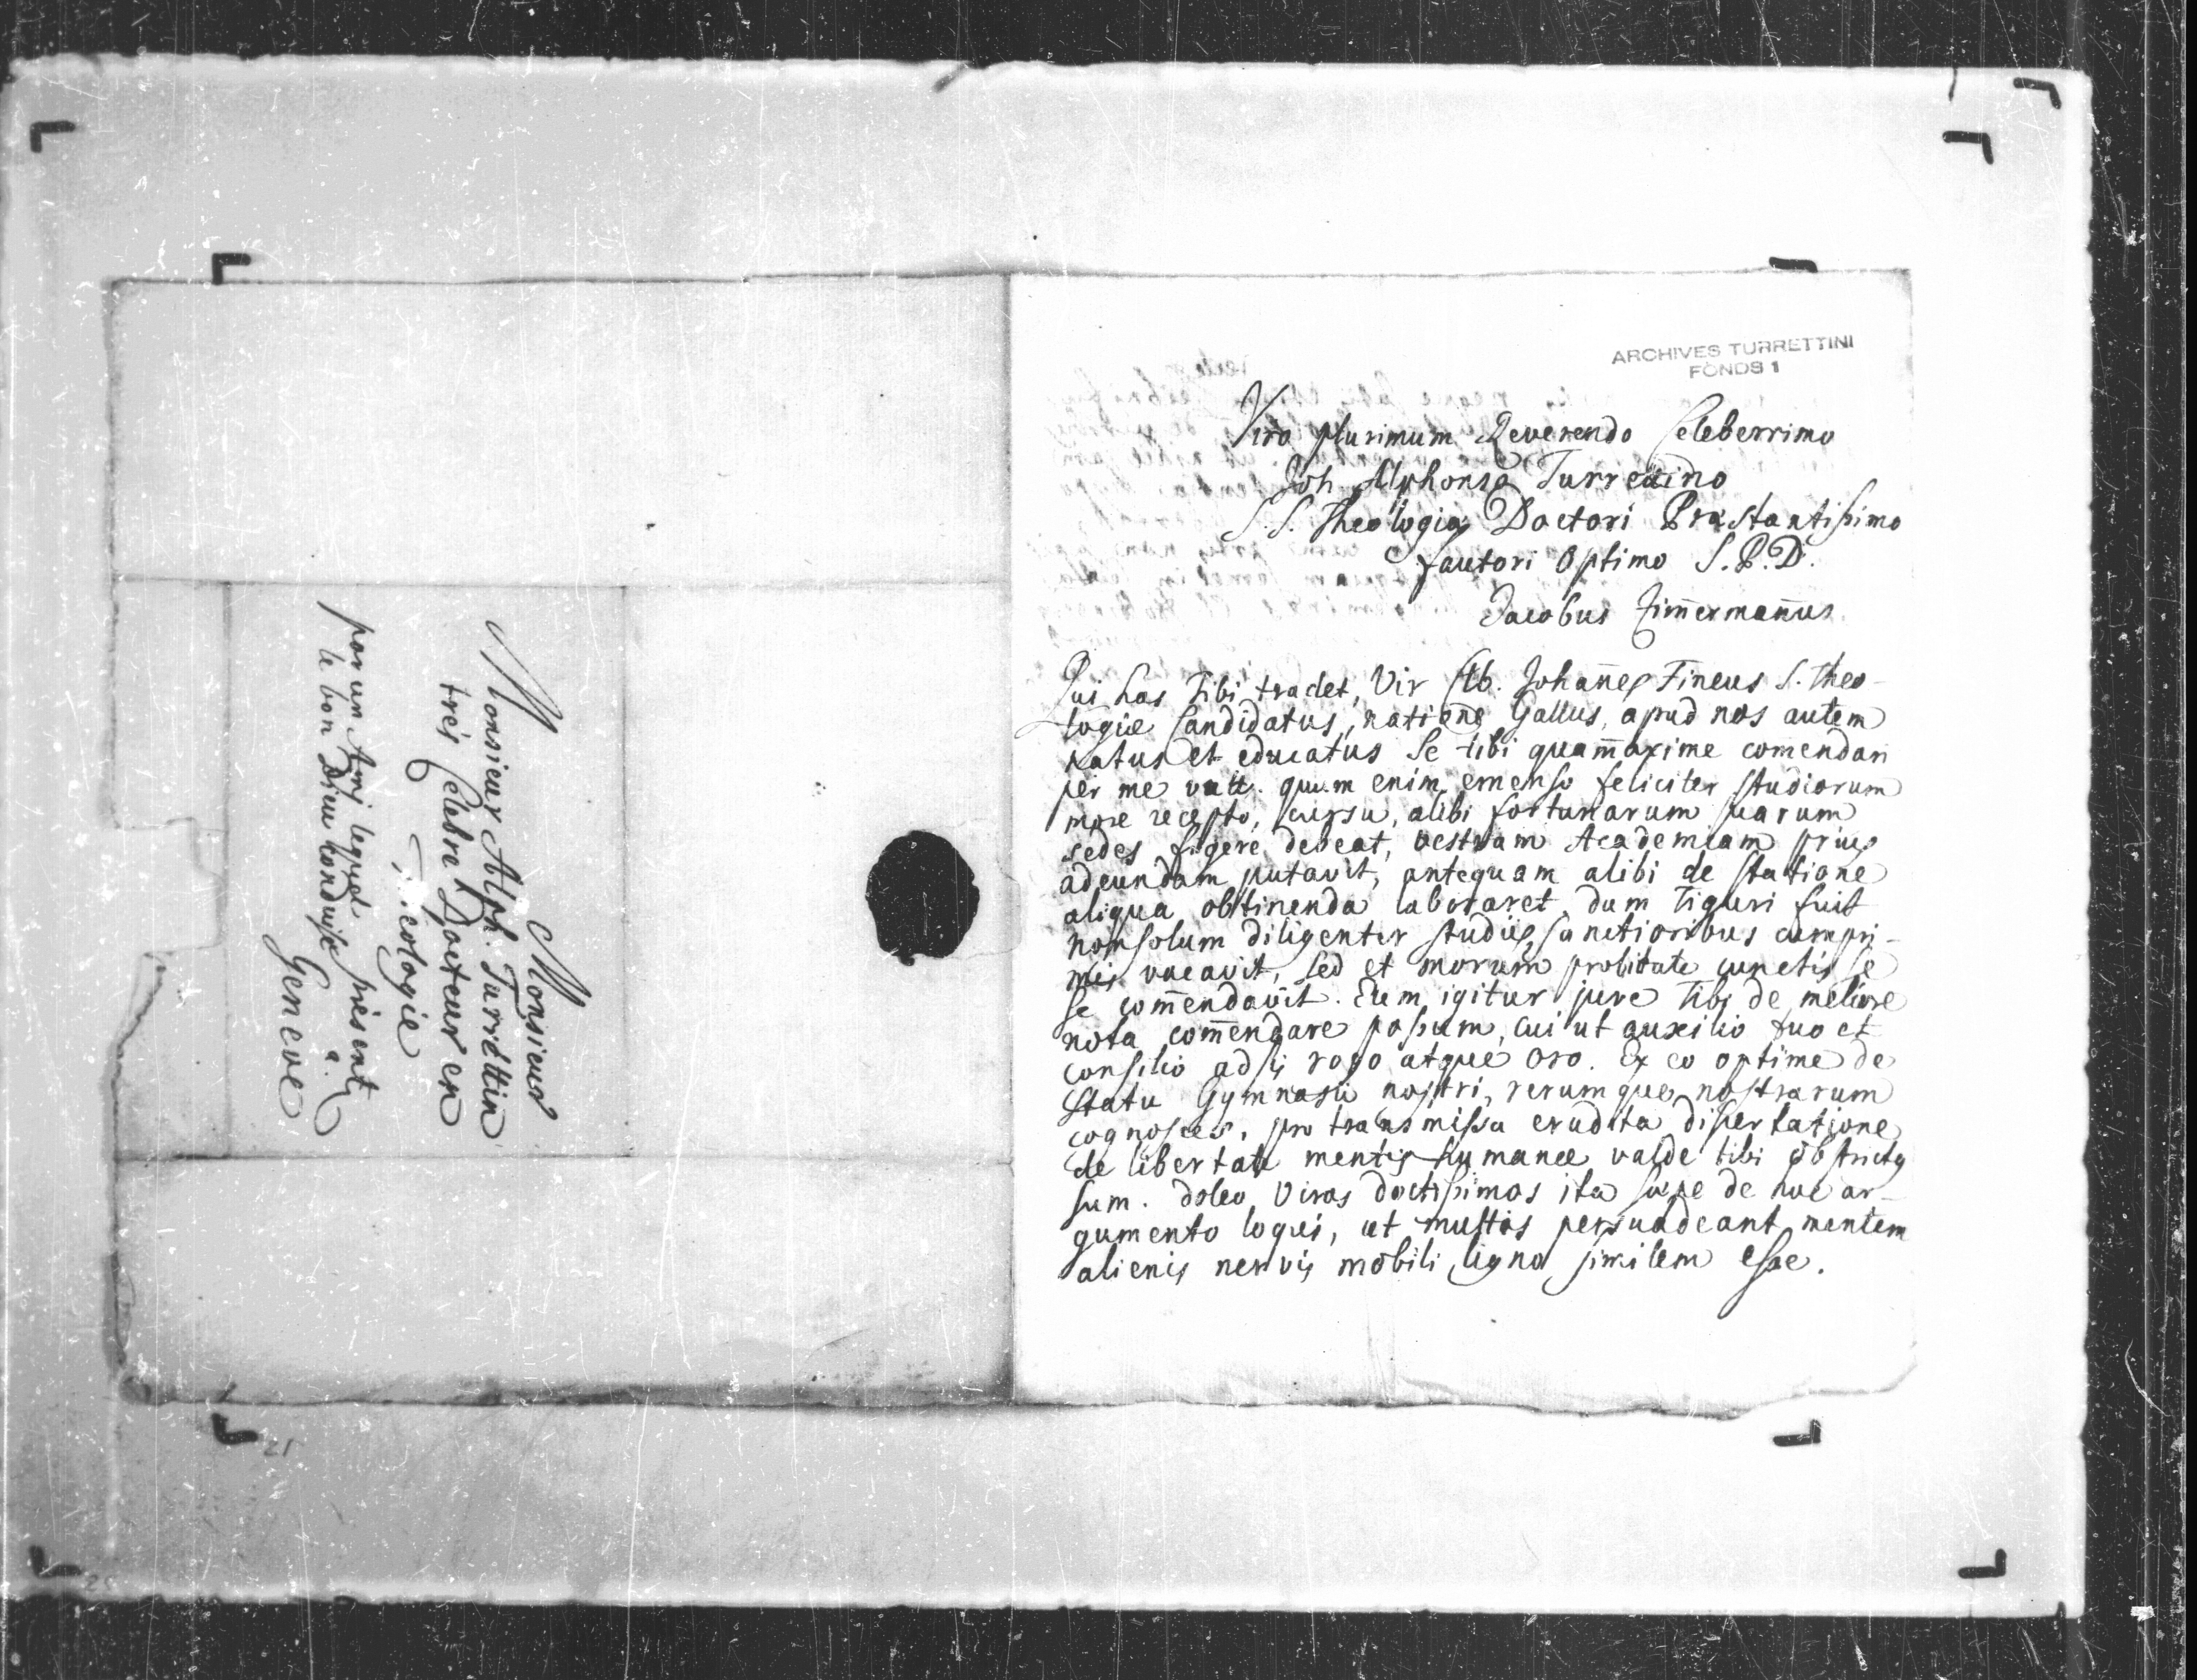 Monsieur
Monsieur Alph. Turrettin
très Celebre Docteur en
Theologie
à
Geneve
par un Ami lequel présent
le bon Dieu conduise
ARCHIVES TURRETTINI
FONDS 1
Viro plurimum Reverendo Celeberrimo
Joh Alphonso Turretino
S.S. Theologiæ Doctori Præstantissimo
fautori Optimo S.P.D.
Jacobus Zim̄erman̄us.
Qui has Tibi tradet, Vir Cl. Johan̄es Fineus S. Theo-
logiæ Candidatus, natione Gallus, apud nos autem
natus et educatus se tibi quam̄axime com̄endari
per me vult. quum enim emenso feliciter studiorum
more recepto, cursu, alibi fortunarum suarum
sedes figere debeat, vestram Academiam prius
adeundam putavit, antequam alibi de statione
aliqua obtinenda laboraret. dum Tiguri fuit
non solum diligenter studiis sanctioribus cumpri-
mis vacavit, sed et morum probitate cunctis se
se com̄endavit. Eum igitur jure Tibi de meliore
nota com̄endare possum, cui ut auxilio tuo et
consilio adsis rogo atque oro. Ex eo optime de
statu Gymnasii nostri, rerumque nostrarum
cognosces. pro transmissa erudita dissertatione
de libertate mentis humanæ valde tibi obstrictus
sum. doleo Viros doctissimos ita sæpe de hoc ar-
gumento loqui, ut multis persuadeant, mentem
alienis nervis mobili ligno similem esse.
21